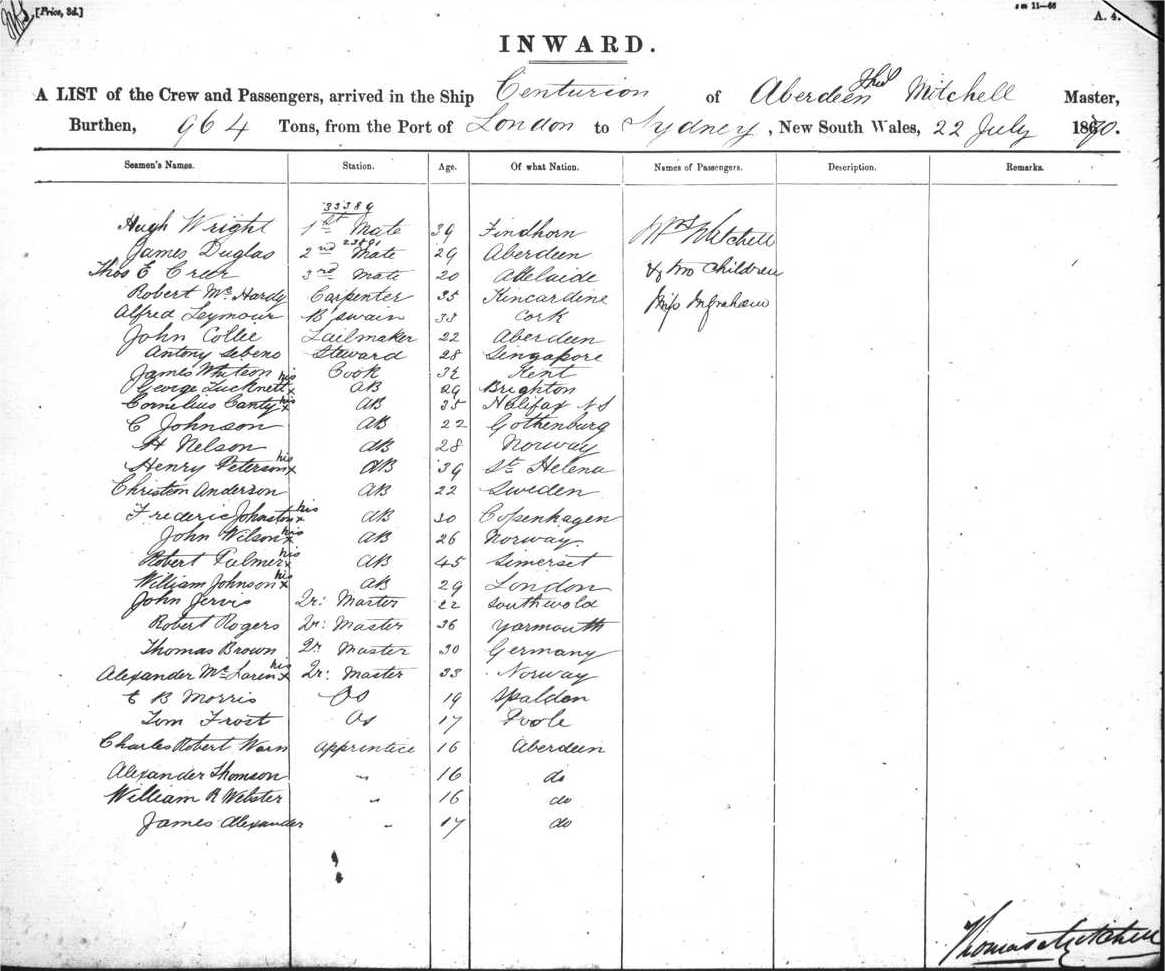 [Price, 3d.]
5 m 11—66
A. 4.
INWARD.
A LIST of the Crew and Passengers, arrived in the Ship Centurion of Aberdeen Mitchell Master,
Burthen, 964 Tons, from the Port of London to Sydney, New South Wales, 22 July 1870.
Seamen's Names. Station. Age. Of what Nation. Names of Passengers. Description. Remarks.
33389
Hugh Wright 1st Mate 39 Findhorn Mrs Mitchell
23891
James Duglas 2nd Mate 29 Aberdeen
Thos E Creer 3rd Mate 20 Adelaide & two children
Robert Mc Hardy Carpenter 35 Kincardine Miss Ingraham
Alfred Seymour B'swain 33 Cork
John Collie Sailmaker 22 Aberdeen
Antony Sebeno Steward 28 Singapore
James Whiteon Cook 32 Kent
George Tucknett his x AB 29 Brighton
Cornelius Canty his x AB 35 Halifax NS
C Johnson AB 22 Gothenburg
H Nelson AB 28 Norway
Henry Peterson his x AB 39 St Helena
Christem Anderson AB 22 Sweden
Frederic Johnston his x AB 30 Copenhagen
John Wilson his x AB 26 Norway
Robert Palmer his x AB 45 Somerset
William Johnson his x AB 29 London
John Jervis Qr: Master 22 Southwold
Robert Rogers Qr: Master 36 Yarmouth
Thomas Brown Qr. Master 30 Germany
Alexander Mc Laren his x Qr: Master 33 Norway
E B Morris OS 19 Spalden
Tom Frost OS 17 Poole
Charles Robert Warn Apprentice 16 Aberdeen
Alexander Thomson " 16 do
William R Webster " 16 do
James Alexander " 17 do
Thomas Mitchell